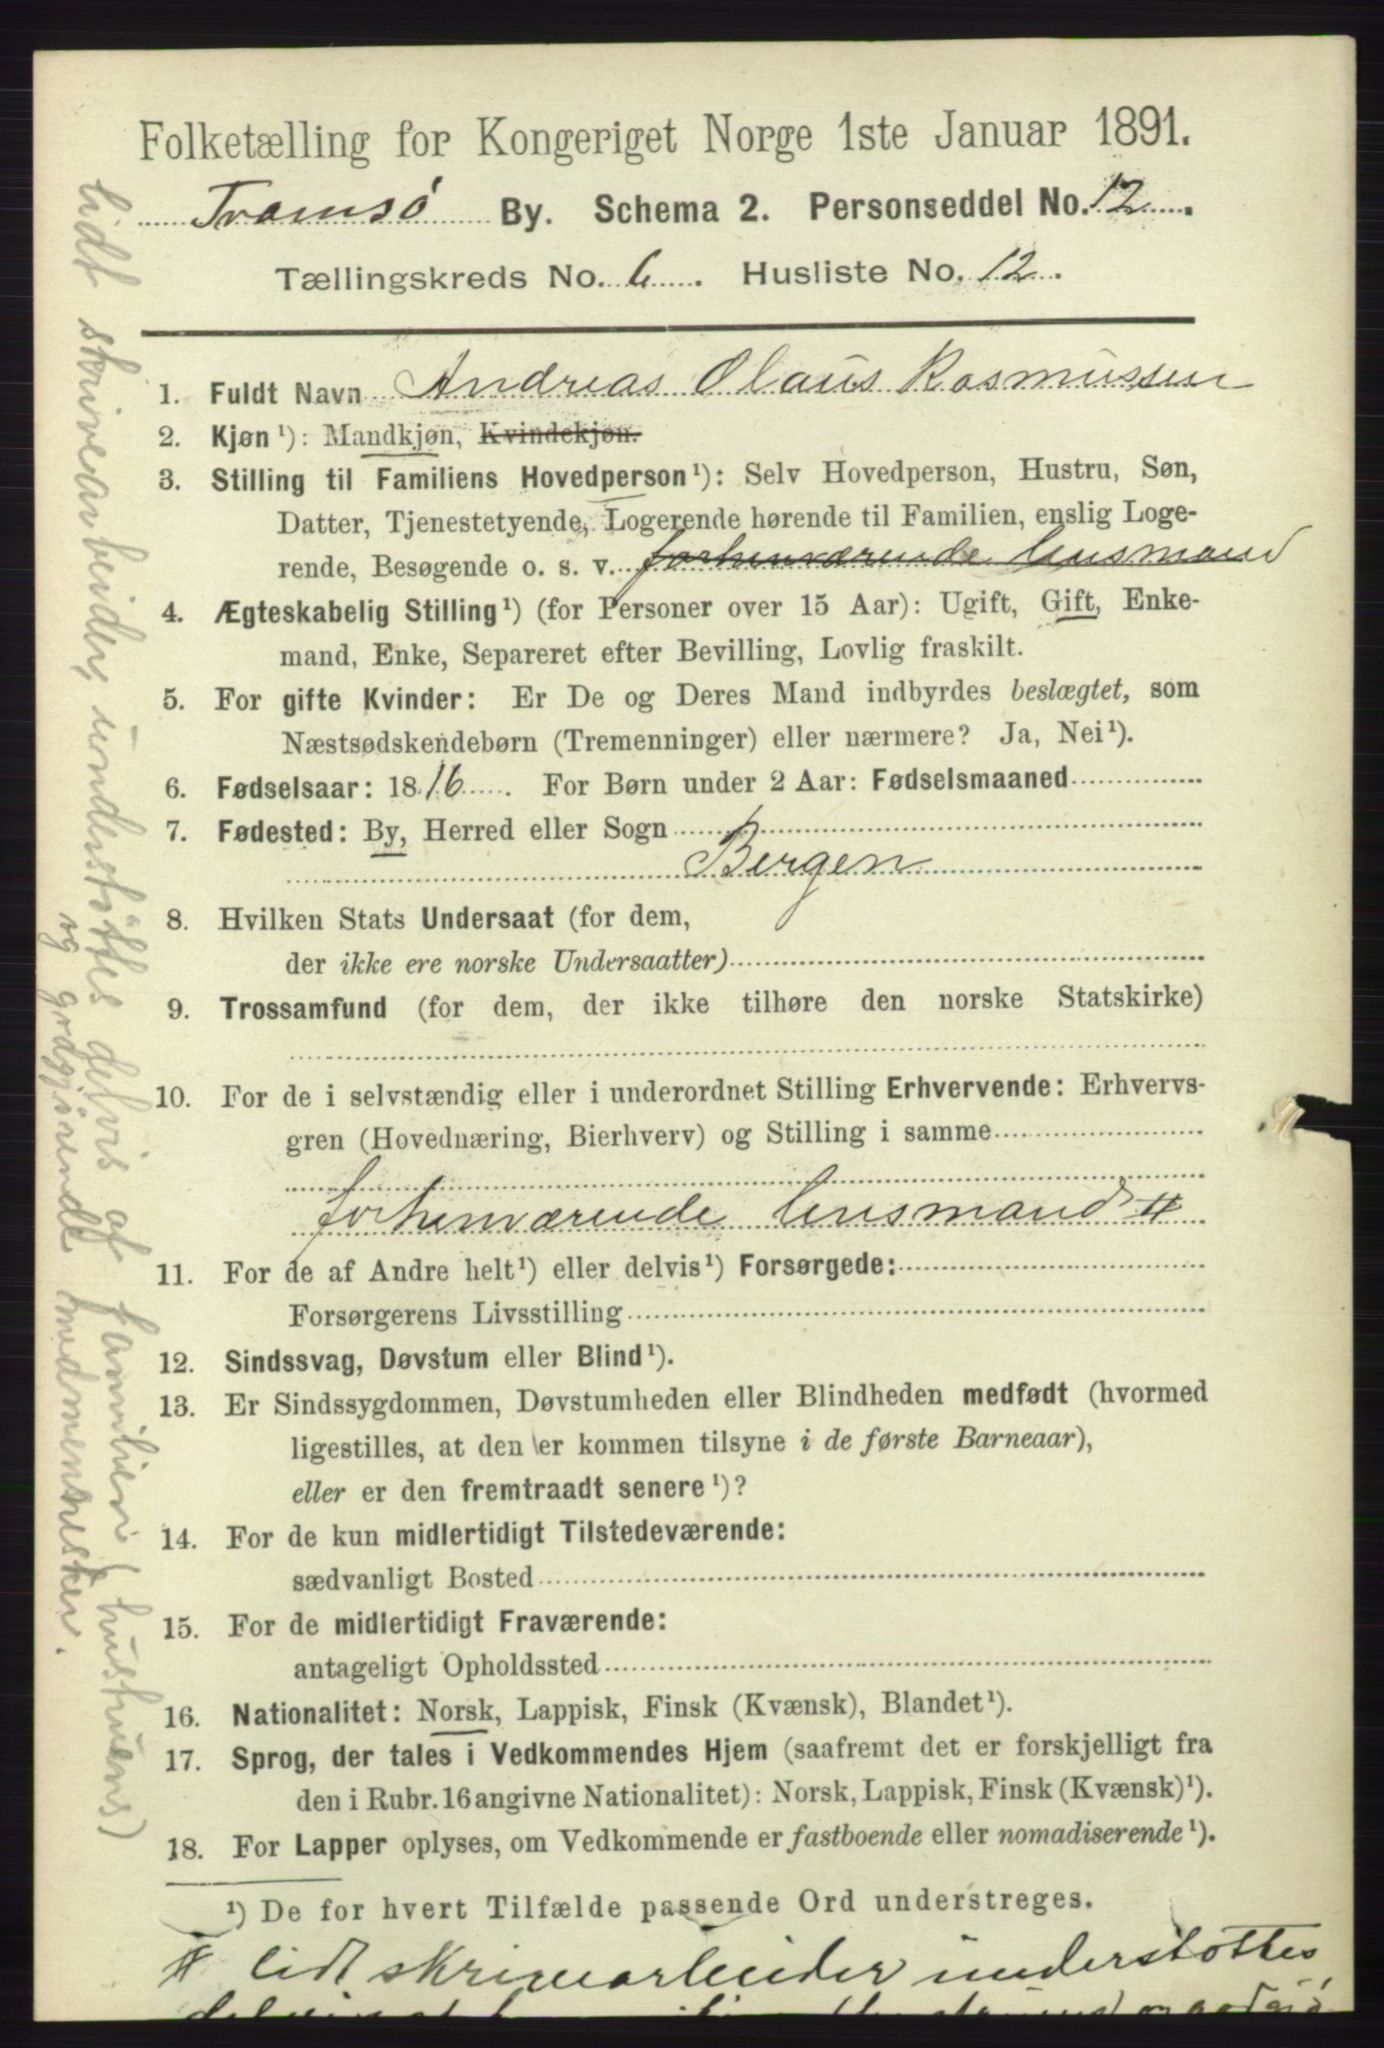 Folketælling for Kongeriget Norge 1ste Januar 1891.
Tromsø By. Schema 2. Personseddel No. 12.
Tællingskreds No. 6. Husliste No. 12.
1. Fuldt Navn Andreas Olaus Rasmussen
2. Kjøn¹): Mandkjøn, Kvindekjøn.
3. Stilling til Familiens Hovedperson¹): Selv Hovedperson, Hustru, Søn,
Datter, Tjenestetyende, Logerende hørende til Familien, enslig Loge-
rende, Besøgende o. s. v. forhenværende lensmand
4. Ægteskabelig Stilling¹) (for Personer over 15 Aar): Ugift, Gift, Enke-
mand, Enke, Separeret efter Bevilling, Lovlig fraskilt.
5. For gifte Kvinder: Er De og Deres Mand indbyrdes beslægtet, som
Næstsødskendebørn (Tremenninger) eller nærmere? Ja, Nei¹).
6. Fødselsaar: 1816. For Børn under 2 Aar: Fødselsmaaned
7. Fødested: By, Herred eller Sogn
Bergen
8. Hvilken Stats Undersaat (for dem,
der ikke ere norske Undersaatter)
9. Trossamfund (for dem, der ikke tilhøre den norske Statskirke)
10. For de i selvstændig eller i underordnet Stilling Erhvervende: Erhvervs-
gren (Hovednæring, Bierhverv) og Stilling i samme
forhenværende lensmand #
11. For de af Andre helt¹) eller delvis¹) Forsørgede:
Forsørgerens Livsstilling
12. Sindssvag, Døvstum eller Blind¹).
13. Er Sindssygdommen, Døvstumheden eller Blindheden medfødt (hvormed
ligestilles, at den er kommen tilsyne i de første Barneaar),
eller er den fremtraadt senere¹)?
14. For de kun midlertidigt Tilstedeværende:
sædvanligt Bosted
15. For de midlertidigt Fraværende:
antageligt Opholdssted
16. Nationalitet: Norsk, Lappisk, Finsk (Kvænsk), Blandet¹).
17. Sprog, der tales i Vedkommendes Hjem (saafremt det er forskjelligt fra
den i Rubr. 16 angivne Nationalitet): Norsk, Lappisk, Finsk (Kvænsk)¹).
18. For Lapper oplyses, om Vedkommende er fastboende eller nomadiserende¹).
¹) De for hvert Tilfælde passende Ord understreges.
# lidt skrivearbeider understøttes
lidt skrivearbeider, understøttes delvis af familien (hustruens)
og godgjørende medmennesker.